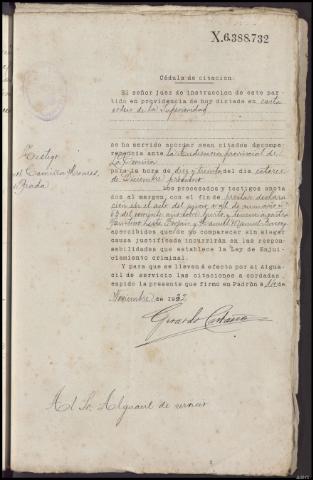 X.6.388.732
Cédula de citación.
El señor juez de instrucción de este par
tido en providencia de hoy dictada en carta
orden de la Superioridad
se ha servido acordar sean citados de compa
renencia ante la Audiencia provincial de
La Coruña
para la hora de diez y treinta del día catorce
de Diciembre próximo
Los procesados y testigos anota
dos al margen, con el fin de prestar declara
ción en el acto del juicio oral de sumario nº
apercibidos que de no comparecer sin alegar
causa justificada incurrirán en las respon-
sabilidades que establece la Ley de Enjui-
ciamiento criminal.
Y para que se lleva á efecto por el Algua
cil de servicio las citaciones a cordadas,
expido la presente que firmo en Padrón a
Noviembre de 1932
Gerardo
Testigo
Al Sr. Alguacil de servicio